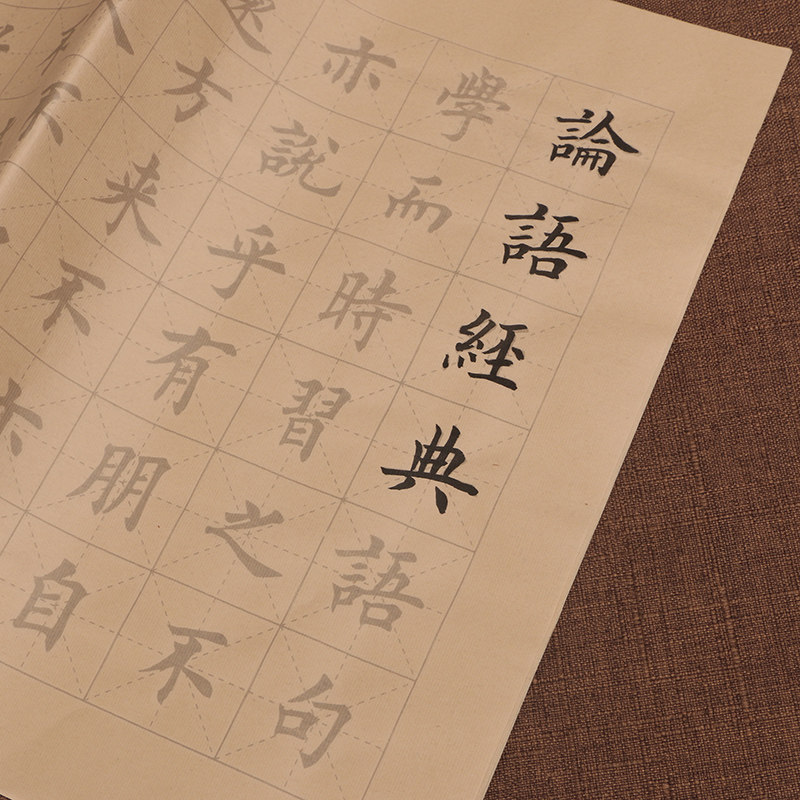 論語經典語句
學而時習之不
亦說乎有朋自
遠方来不亦
人不